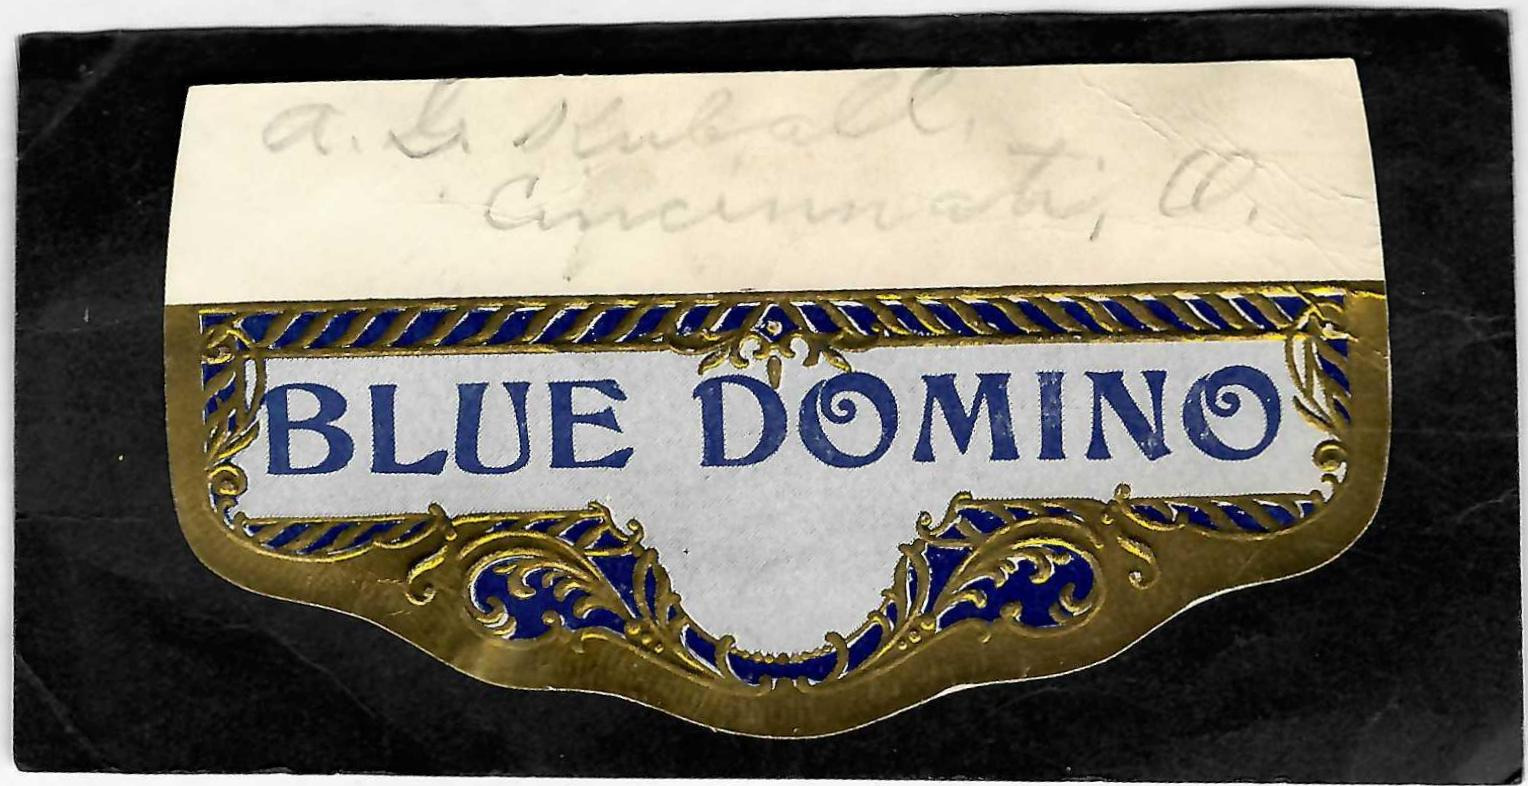 A. G. Kuball,
Cincinnati, O.
BLUE DOMINO